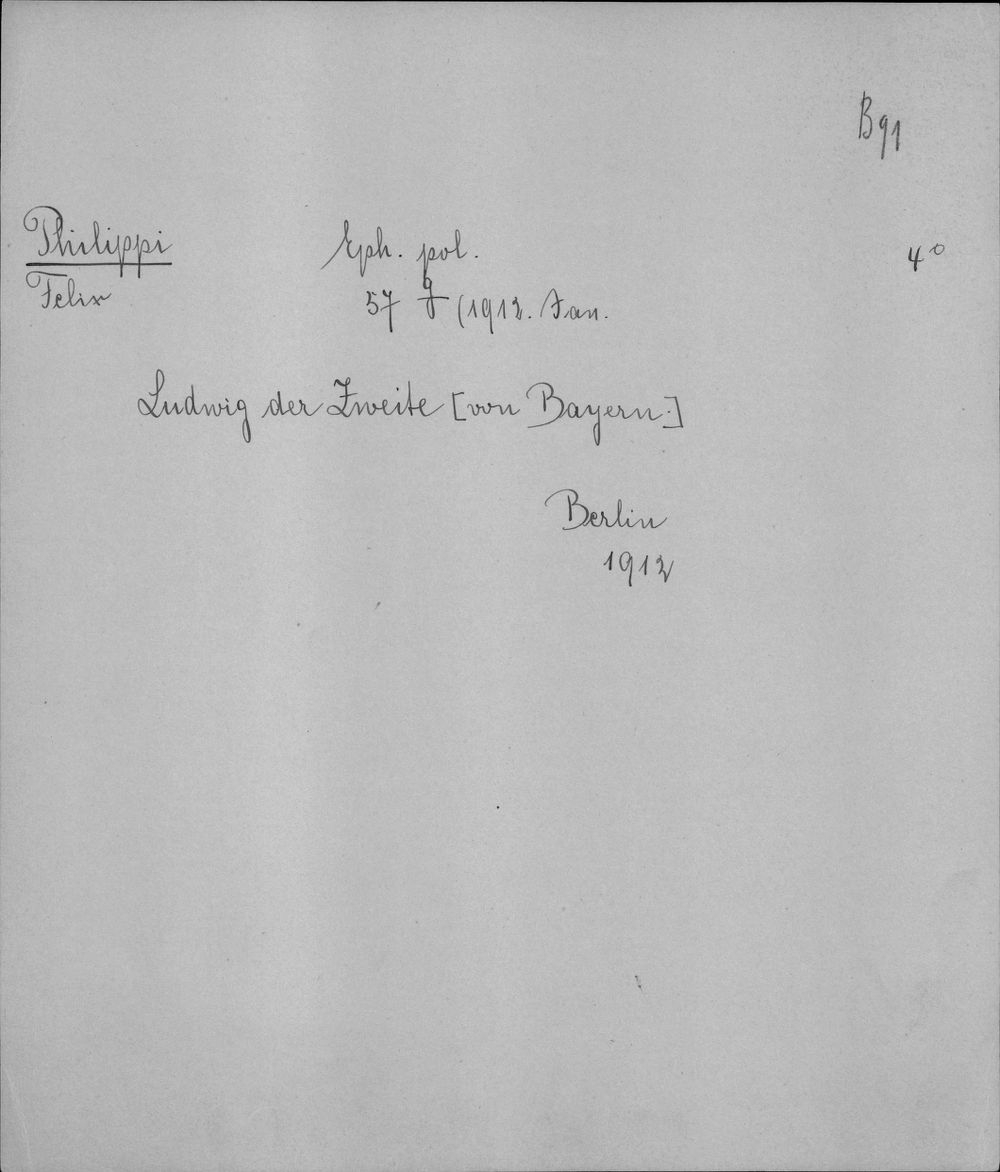 B91
Philippi Eph. pol. 4°
Felix 57 g (1912. Jan.
Ludwig der Zweite [von Bayern.]
Berlin
1912